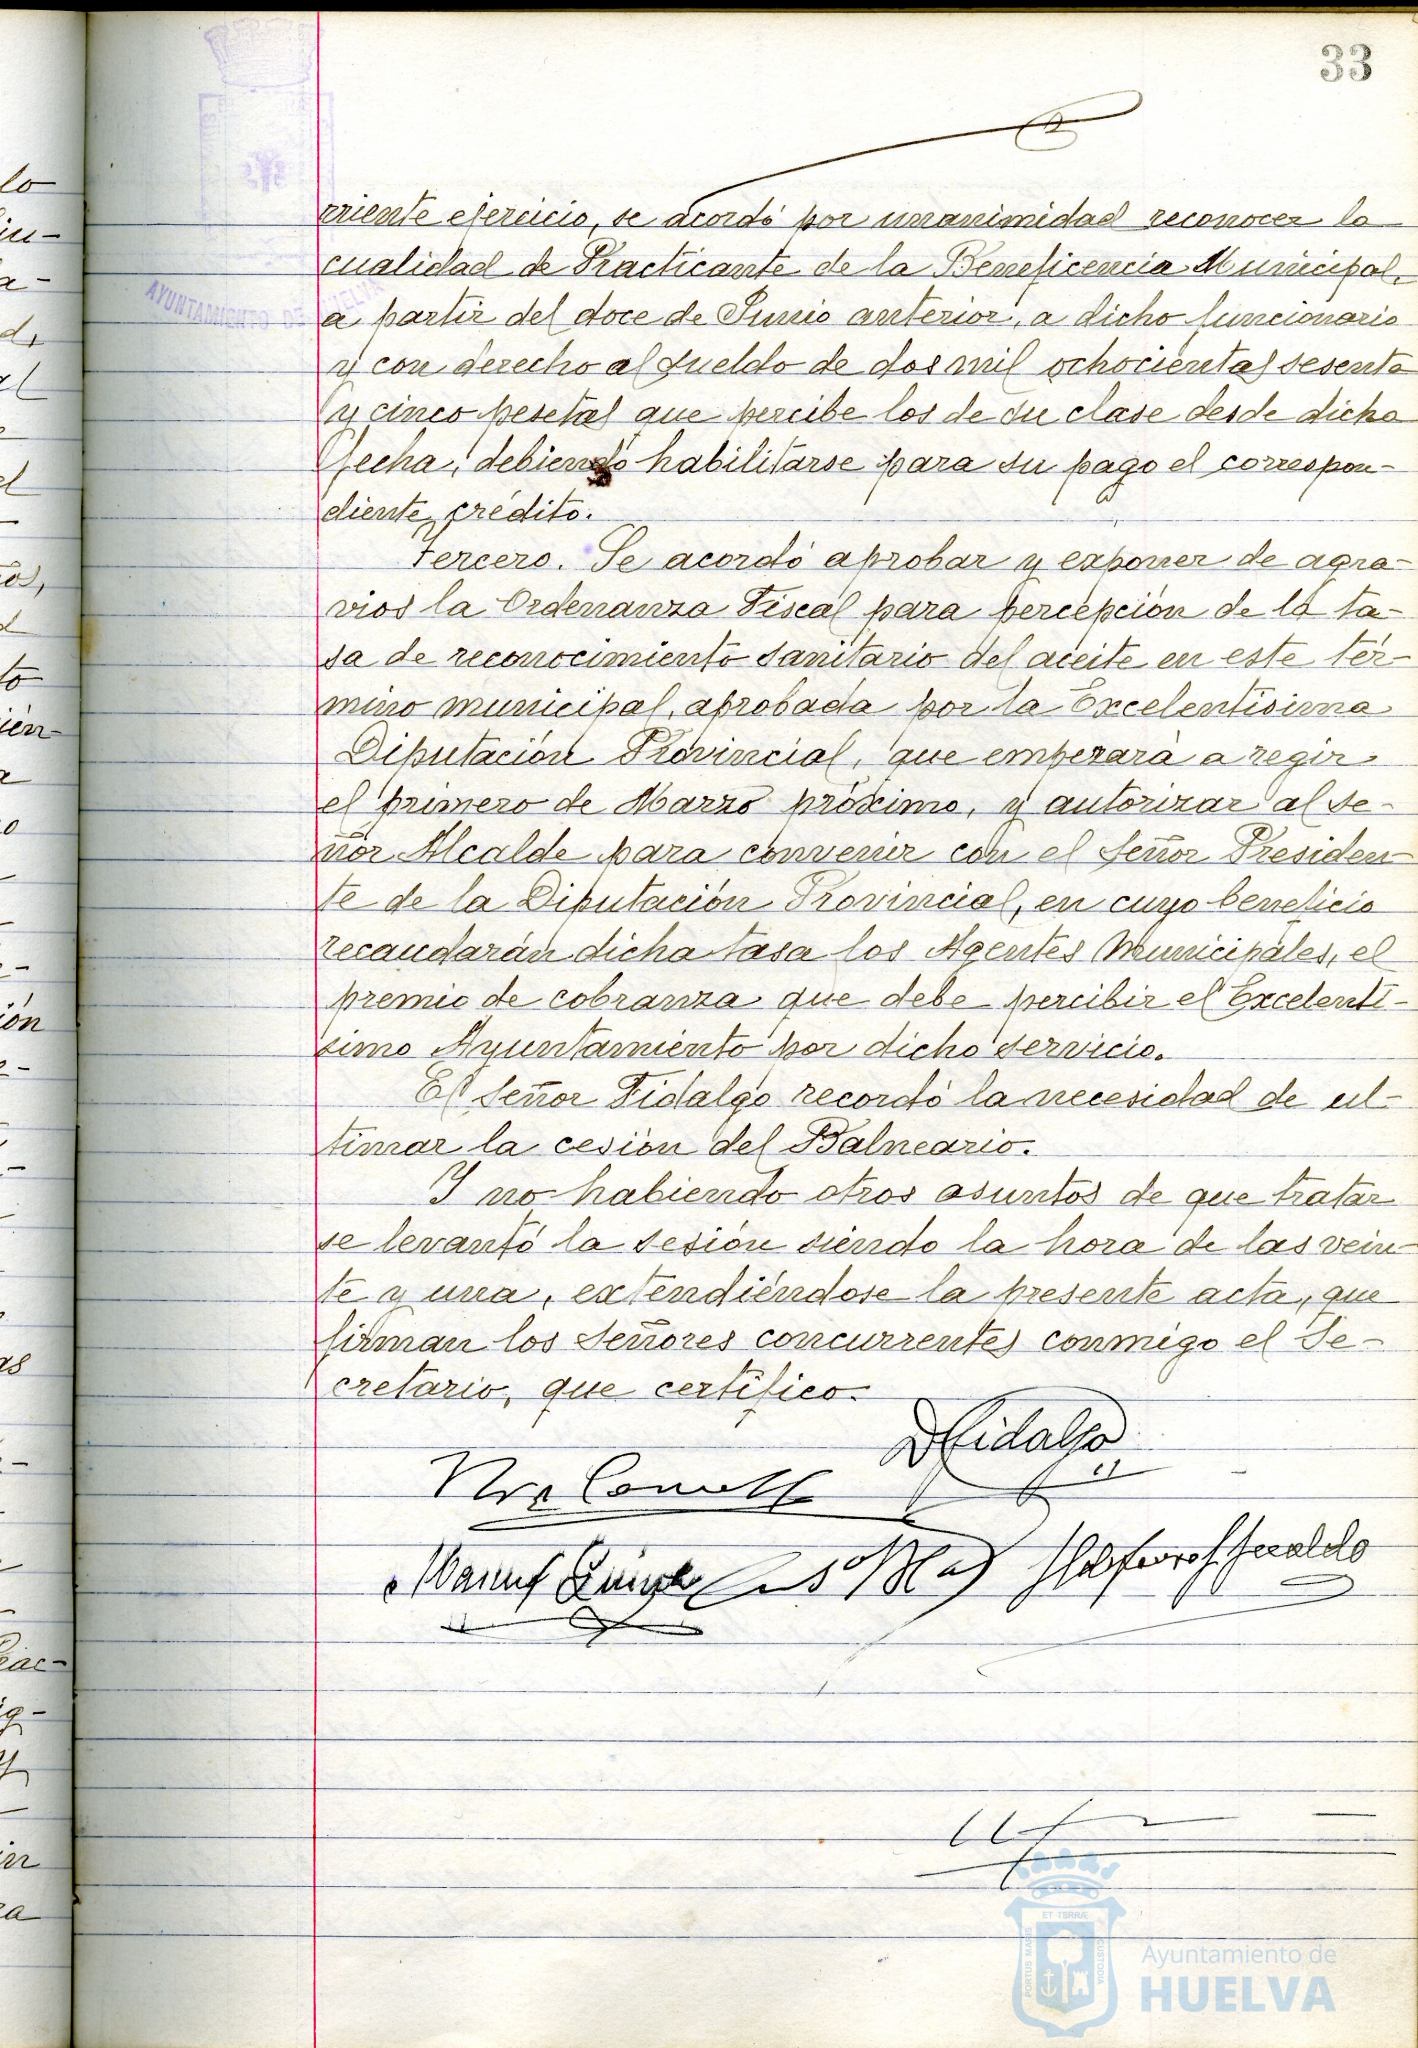 33
rriente ejercicio, se acordó por unanimidad reconocer la
cualidad de Practicante de la Beneficencia Municipal,
a partir del doce de Junio anterior, a dicho funcionario
y con derecho al sueldo de dos mil ochocientas sesenta
y cinco pesetas que percibe los de su clase desde dicha
fecha, debiendo habilitarse para su pago el correspon-
diente crédito.
Tercero. Se acordó aprobar y exponer de agra-
vios la Ordenanza Fiscal para percepción de la ta-
sa de reconocimiento sanitario del aceite en este tér-
mino municipal, aprobada por la Excelentisima
Diputación Provincial, que empezará a regir
el primero de Marzo próximo, y autorizar al se-
ñor Alcalde para convenir con el Señor Presiden-
te de la Diputación Provincial, en cuyo beneficio
recaudarán dicha tasa los Agentes Municipales, el
premio de cobranza que debe percibir el Excelentí-
simo Ayuntamiento por dicho servicio.
El Señor Fidalgo recordó la necesidad de ul-
timar la cesión del Balneario.
Y no habiendo otros asuntos de que tratar
se levantó la sesión siendo la hora de las vein-
te y una, extendiéndose la presente acta, que
firman los Señores concurrentes conmigo el Se-
cretario, que certifico.
D Fidalgo
AYUNTAMIENTO DE HUELVA
PORTUS MARIS ET TERRÆ CUSTODIA
Ayuntamiento de
HUELVA